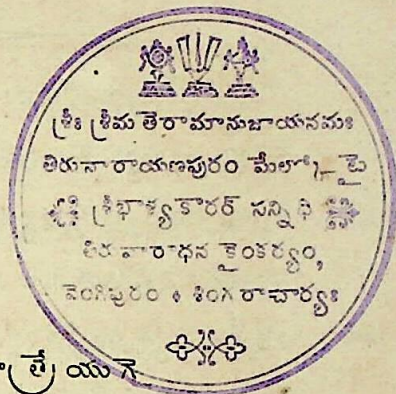 శ్రీః శ్రీమ తెరామానుజాయనమః
తిరునారాయణపురం మేల్కోటై
శ్రీభాశ్యకారర్ సన్నిధి
తిరువారాధన కైంకర్యం,
వెంగిపురం • శింగరాచార్యః
త్రే యుగె